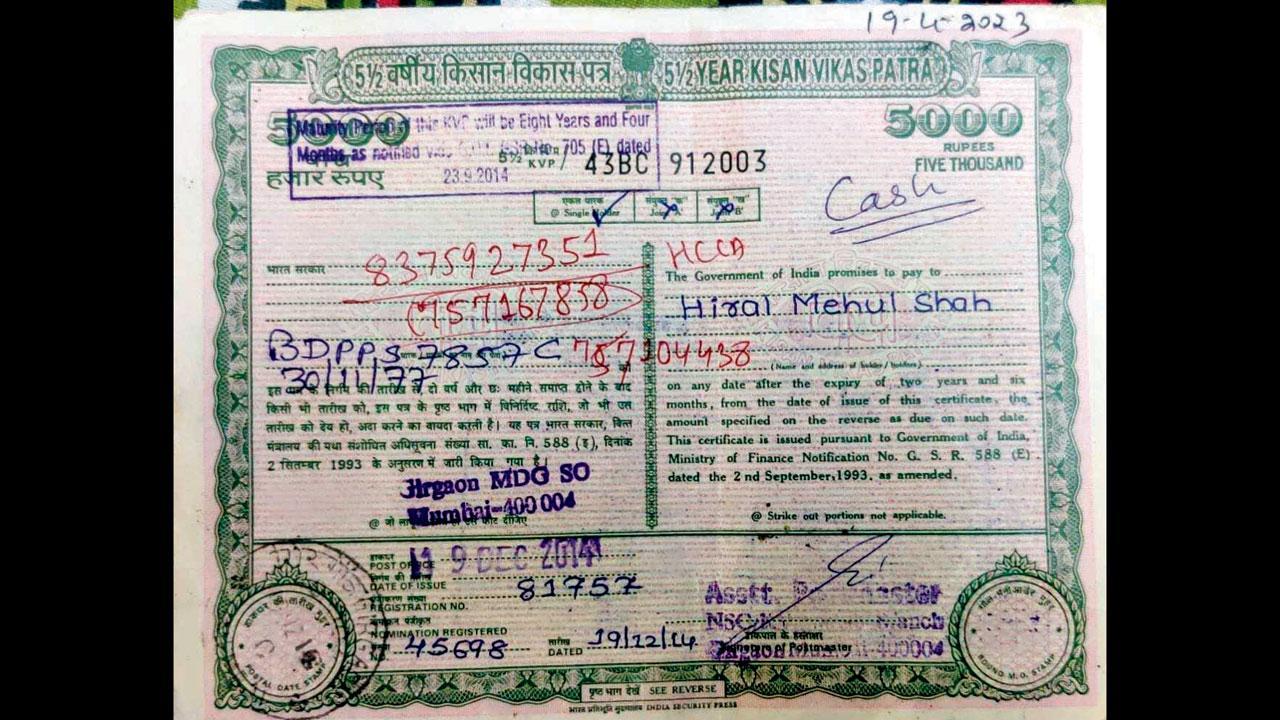 19-4-2023
5½ वर्षीय किसान विकास पत्र 5½ YEAR KISAN VIKAS PATRA
5000 5000
Maturity Period of this KVP will be Eight Years and Four
Months as notified 705 (E) dated
23.9.2014
RUPEES
FIVE THOUSAND
हजार रुपए
5½ KVP / 43BC 912003
Cash
एकल धारक
@ Single Holder
भारत सरकार
8375927351
HCCA
The Government of India promises to pay to
757167858
Hiral Mehul Shah
757104438
30/11/77
(Name and address of holder/holders)
इस की तारीख से, दो वर्ष और छः महीने समाप्त होने के बाद
किसी भी तारीख को, इस पत्र के पृष्ठ भाग में विनिर्दिष्ट राशि, जो भी उस
तारीख को देय हो, अदा करने का वायदा करती है। यह पत्र भारत सरकार, वित्त
मंत्रालय की यथा संशोधित अधिसूचना संख्या सा. का. नि. 588 (इ), दिनांक
2 सितम्बर 1993 के अनुसरण में जारी किया गया है।
on any date after the expiry of two years and six
months, from the date of issue of this certificate, the
amount specified on the reverse as due on such date.
This certificate is issued pursuant to Government of India,
Ministry of Finance Notification No. G. S. R. 588 (E)
dated the 2 nd September,1993, as amended.
Girgaon MDG SO
Mumbai-400 004
@ Strike out portions not applicable.
POST OFFICE
19 DEC 2014
DATE OF ISSUE
81757
REGISTRATION NO.
NOMINATION REGISTERED
No. 45698
तारीख
DATED 19/12/14
Asstt. Postmaster
Branch
Signature of Postmaster
Girgaon 400004
POSTAL DATE STAMP
ROUND M.O. STAMP
पृष्ठ भाग देखें SEE REVERSE
भारत प्रतिभूति मुद्रणालय INDIA SECURITY PRESS